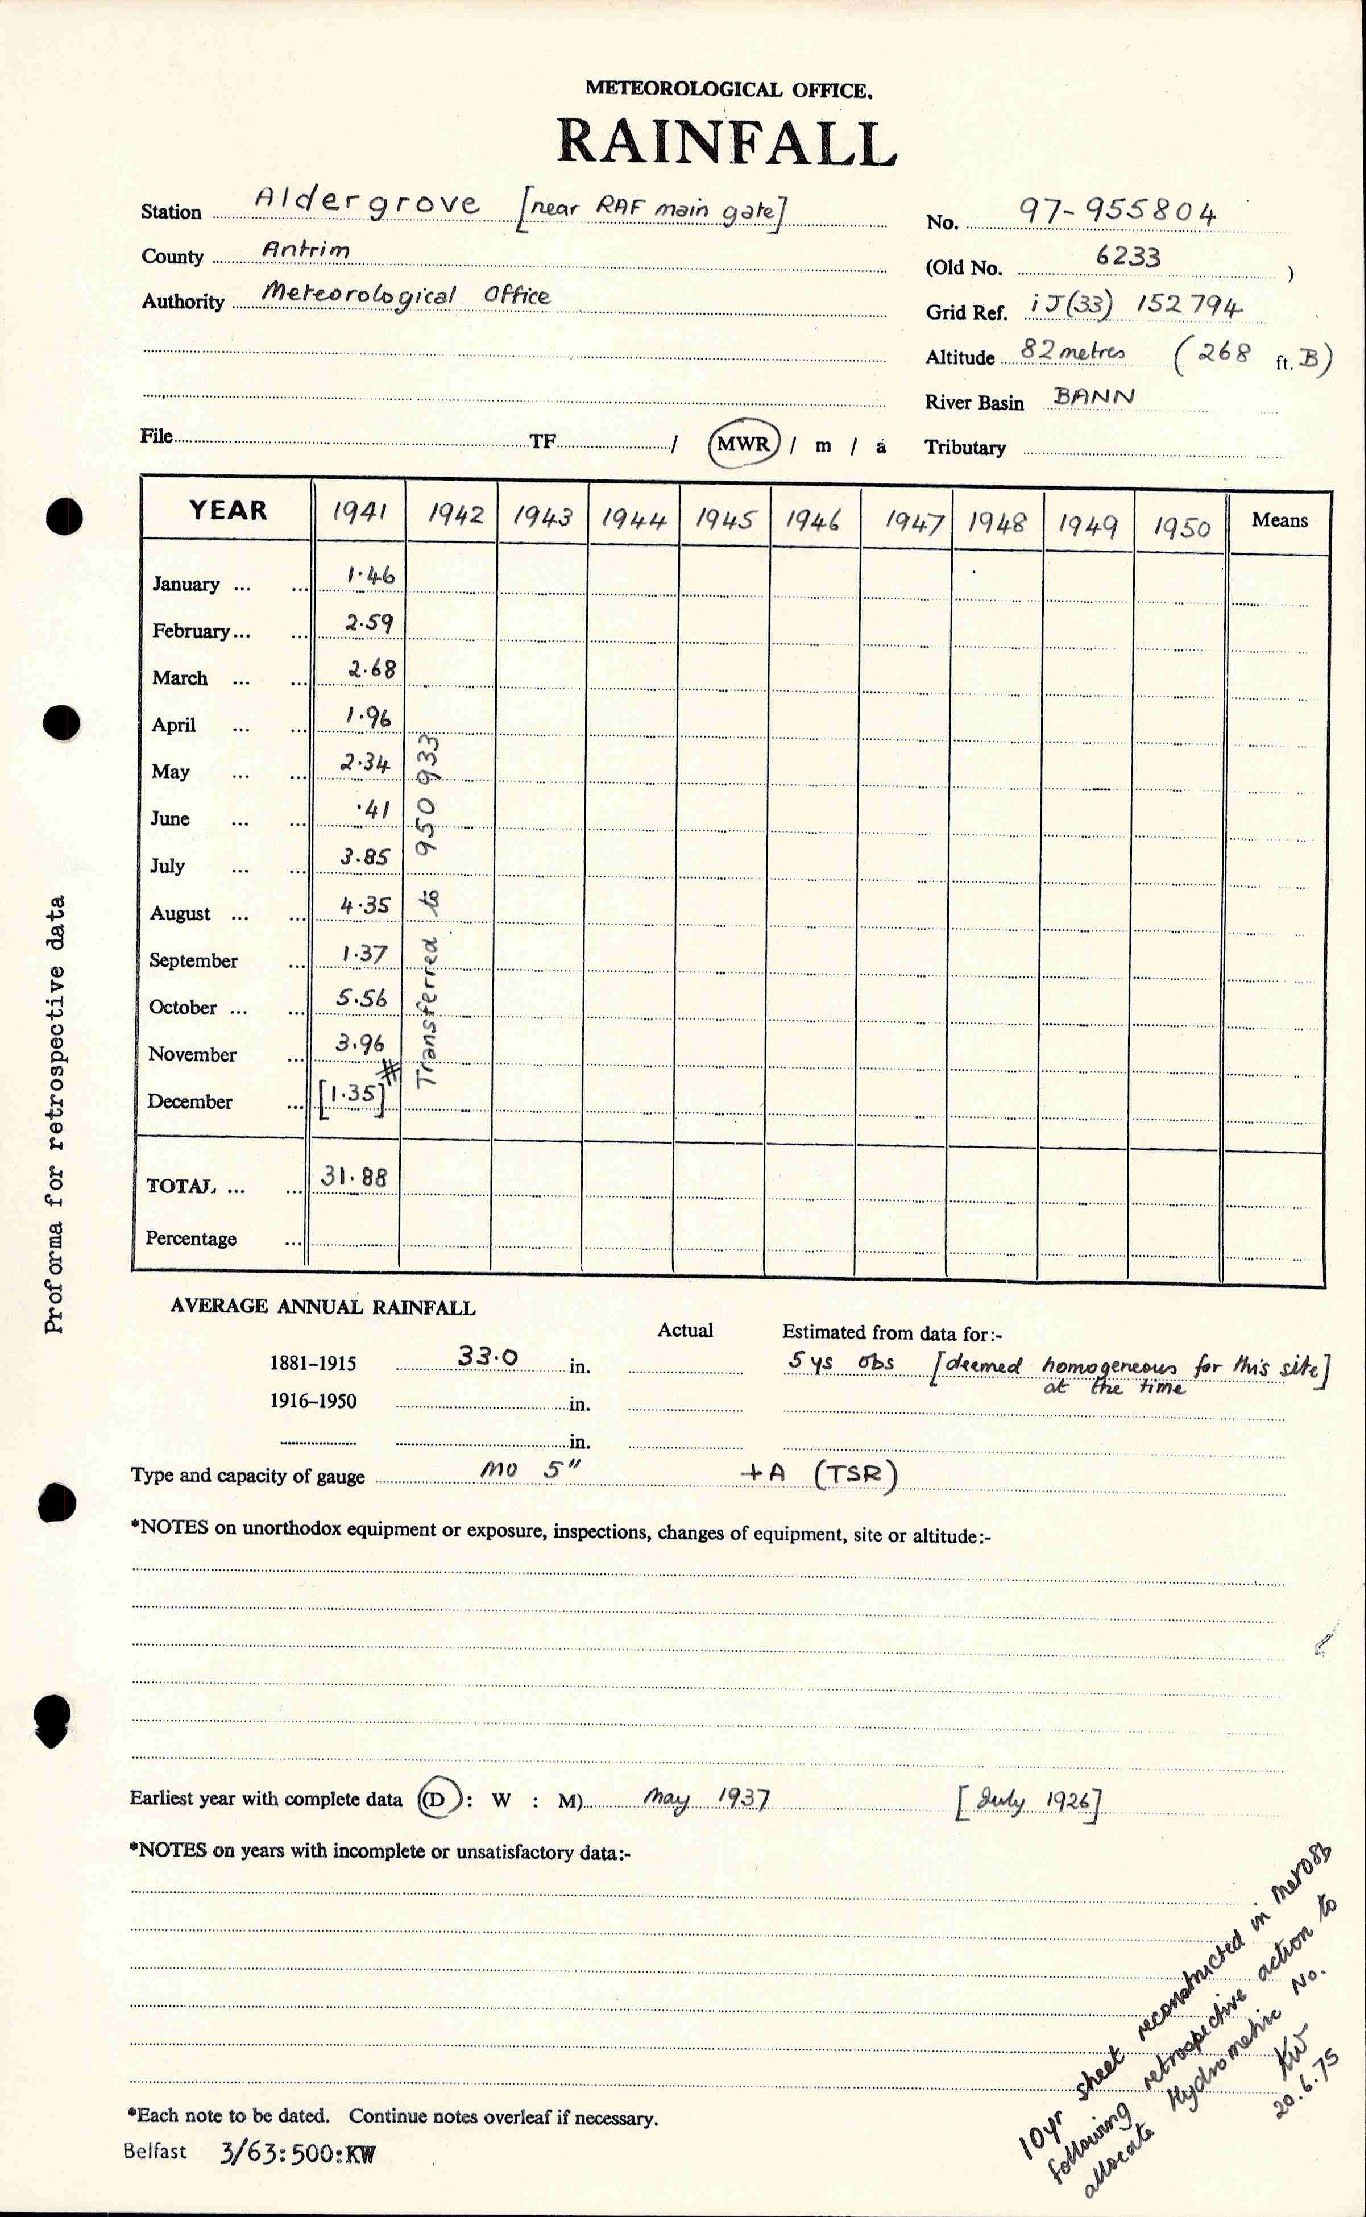 METEOROLOGICAL OFFICE.
RAINFALL
Station Aldergrove [near RAF main gate]
No. 97-955804
County Antrim
(Old No. 6233 )
Authority Meteorological Office
Grid Ref. iJ(33) 152794
Altitude 82 metres (268 ft. B)
River Basin BANN
File TF / MWR / m / a Tributary
YEAR 1941 1942 1943 1944 1945 1946 1947 1948 1949 1950 Means
January ... ... 1.46
February ... ... 2.59
March ... ... 2.68
April ... ... 1.96
May ... ... 2.34
June ... ... .41
July ... ... 3.85
August ... ... 4.35
September ... 1.37
October ... ... 5.56
November ... 3.96
December ... [1.35] #
Transferred to 950933
TOTAL ... ... 31.88
Percentage ...
Proforma for retrospective data
AVERAGE ANNUAL RAINFALL
Actual Estimated from data for:-
1881-1915 33.0 in. 5 ys obs [deemed homogeneous for this site]
at the time
1916-1950 in.
in.
Type and capacity of gauge MO 5" + A (TSR)
*NOTES on unorthodox equipment or exposure, inspections, changes of equipment, site or altitude:-
Earliest year with complete data (D : W : M) May 1937 [July 1926]
*NOTES on years with incomplete or unsatisfactory data:-
10yr sheet reconstructed in Met08b
following retrospective action to
allocate Hydrometric No.
KW
20.6.75
*Each note to be dated. Continue notes overleaf if necessary.
Belfast 3/63:500:KW